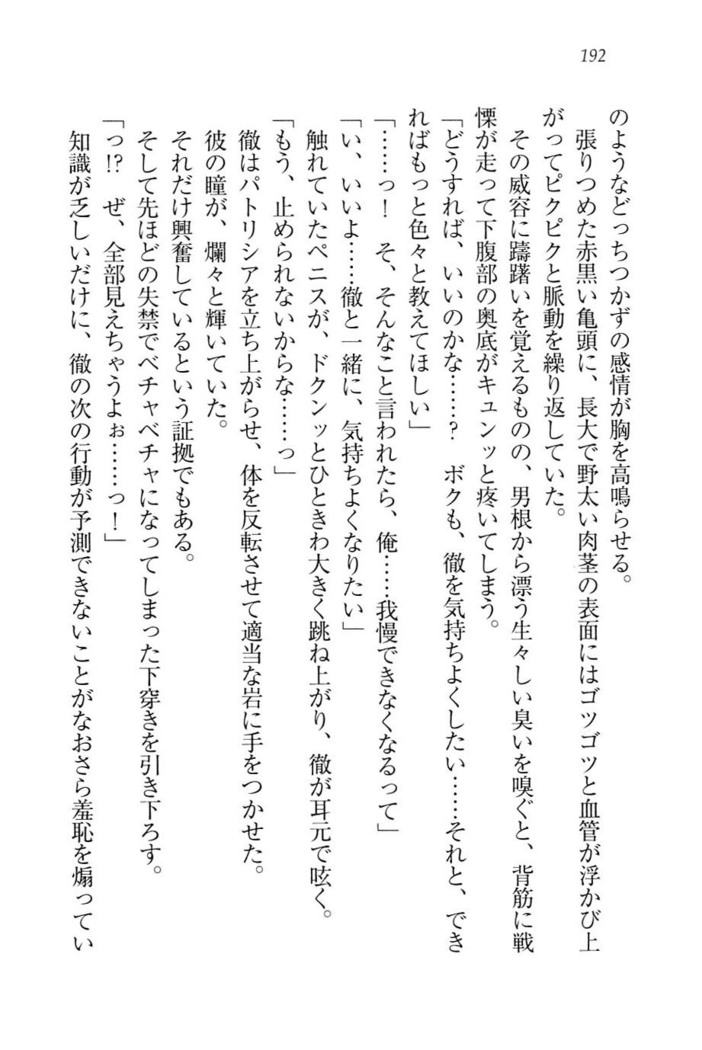 192
のようなどっちつかずの感情が胸を高鳴らせる。
張りつめた赤黒い亀頭に、長大で野太い肉茎の表面にはゴツゴツと血管が浮かび上
がってピクピクと脈動を繰り返していた。
その威容に躊躇いを覚えるものの、男根から漂う生々しい臭いを嗅ぐと、背筋に戦
慄が走って下腹部の奥底がキュンッと疼いてしまう。
「どうすれば、いいのかな……? ボクも、徹を気持ちよくしたい……それと、でき
ればもっと色々と教えてほしい」
「……っ! そ、そんなこと言われたら、俺……我慢できなくなるって」
「い、いいよ……徹と一緒に、気持ちよくなりたい」
触れていたペニスが、ドクンッとひときわ大きく跳ね上がり、徹が耳元で呟く。
「もう、止められないからな……っ」
徹はパトリシアを立ち上がらせ、体を反転させて適当な岩に手をつかせた。
彼の瞳が、爛々と輝いていた。
それだけ興奮しているという証拠でもある。
そして先ほどの失禁でベチャベチャになってしまった下穿きを引き下ろす。
「っ!? ぜ、全部見えちゃうよぉ……っ!」
知識が乏しいだけに、徹の次の行動が予測できないことがなおさら羞恥を煽ってい